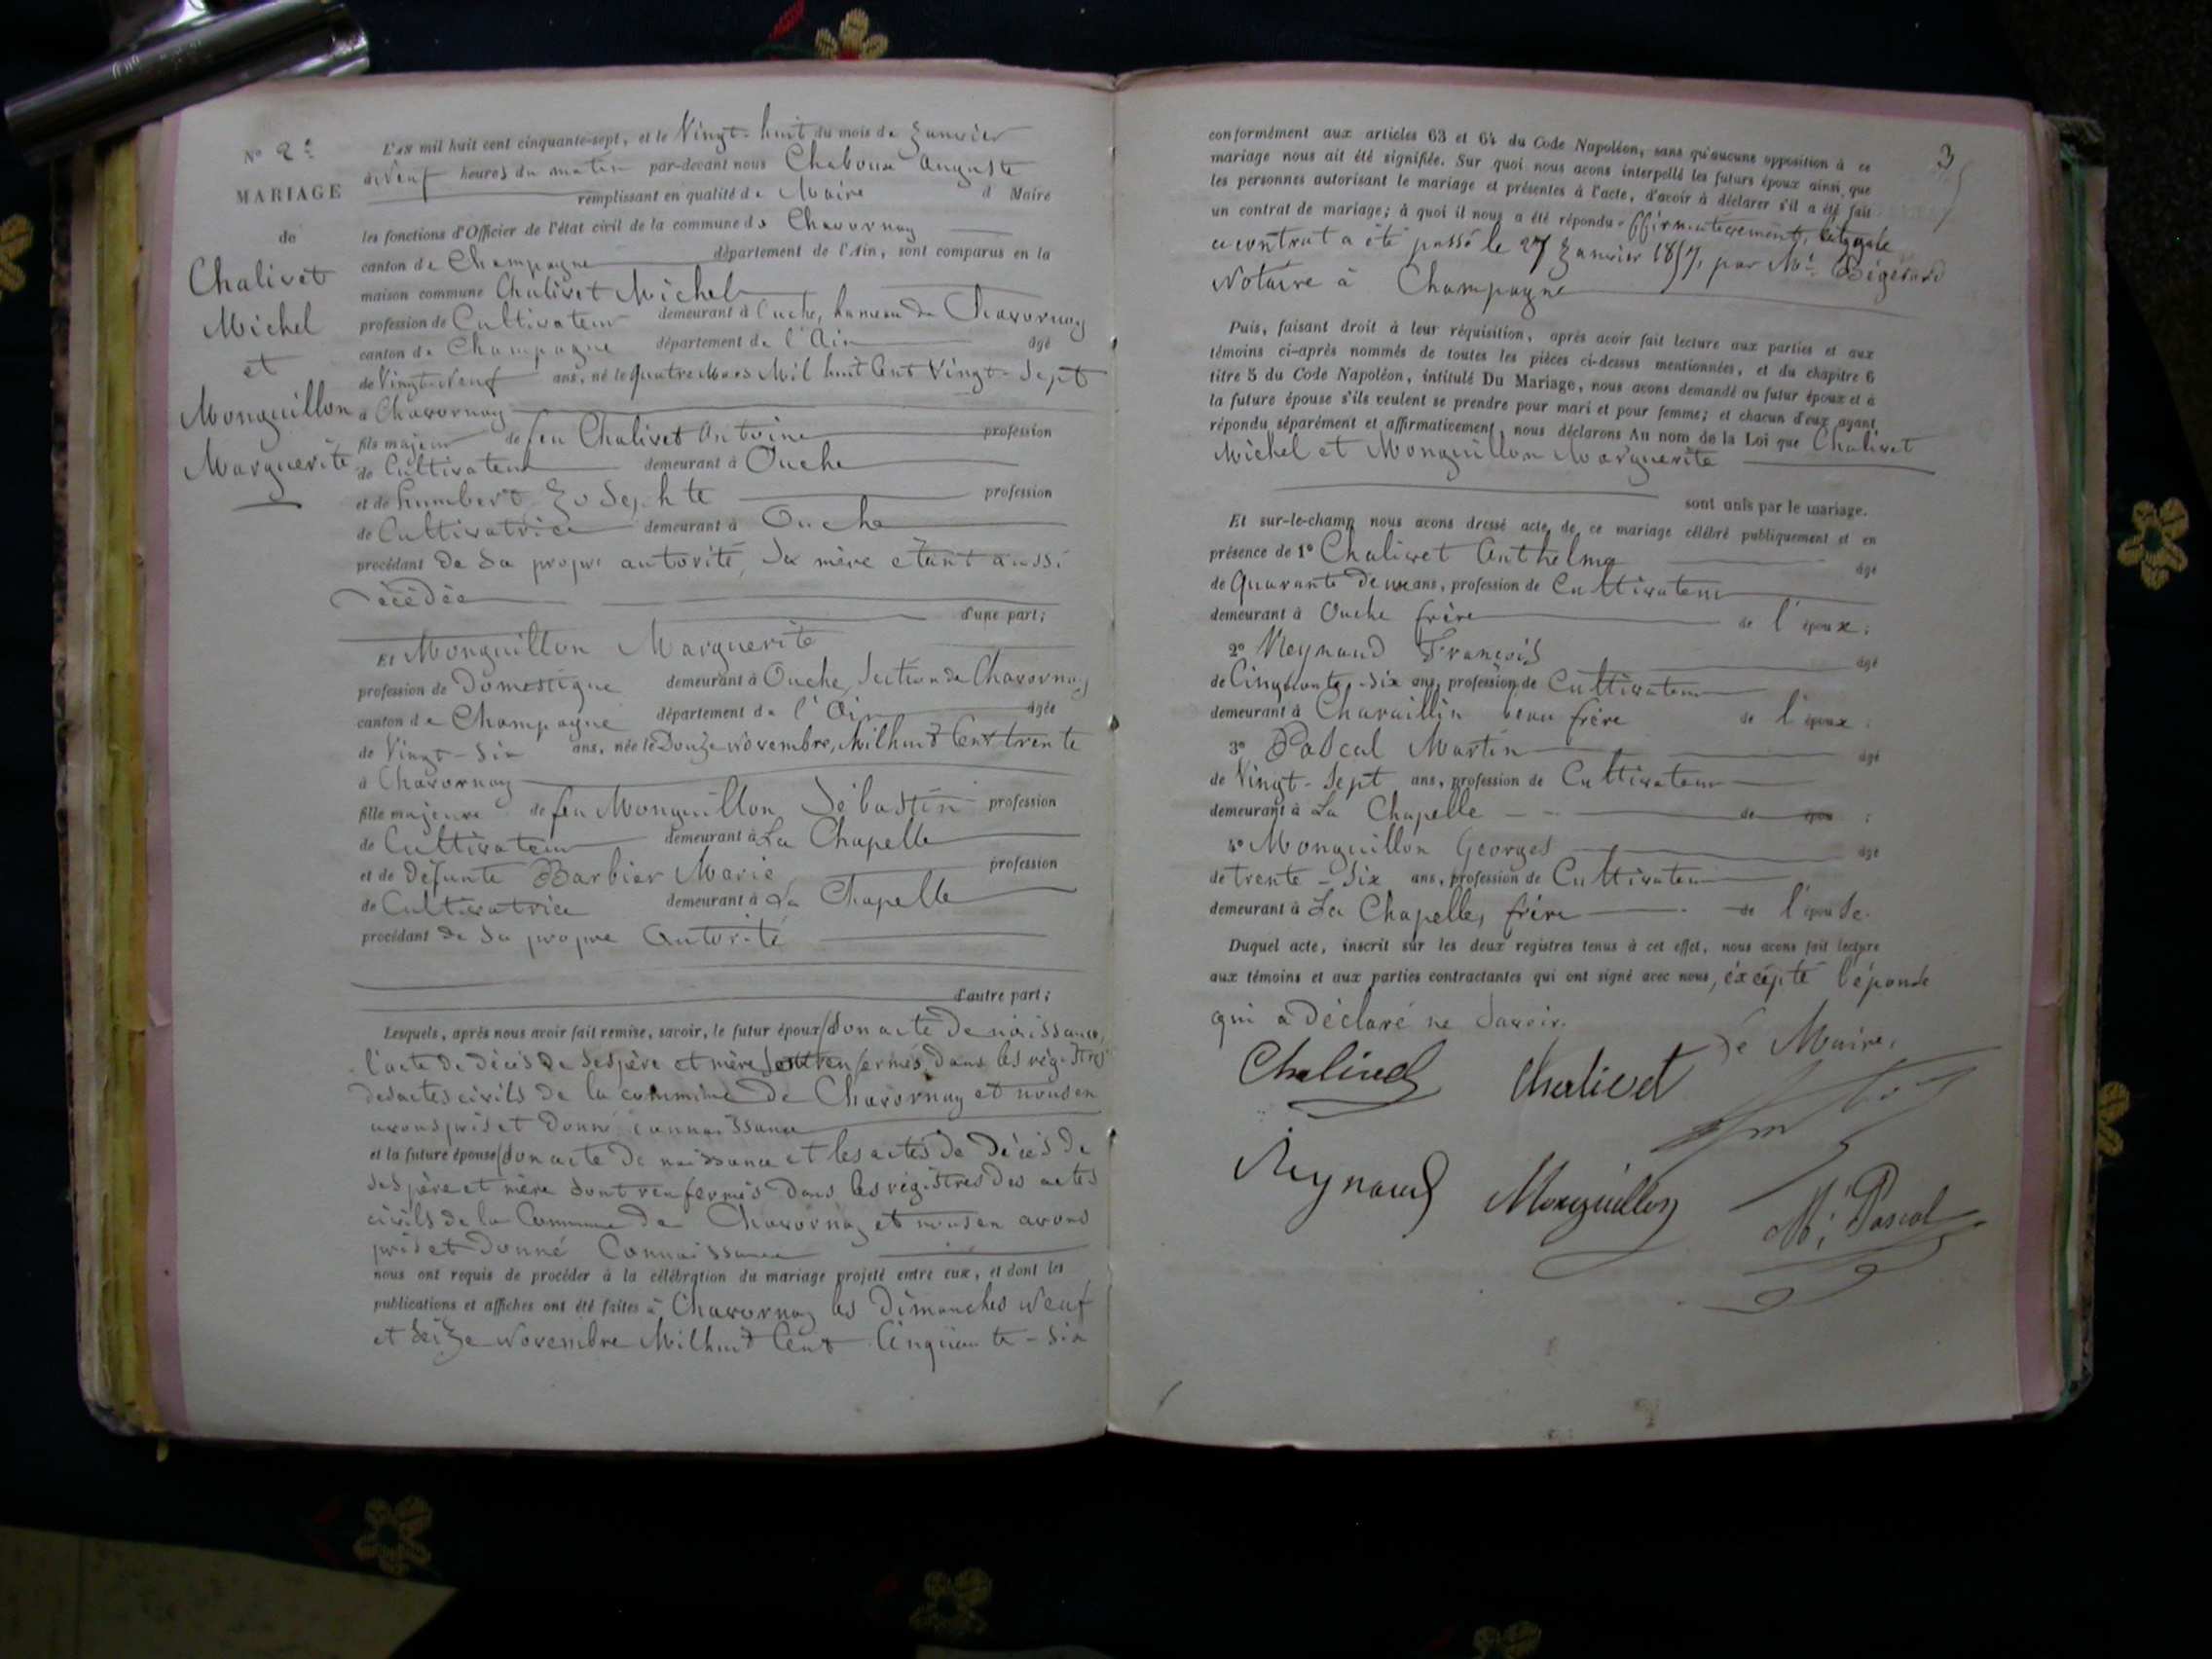 N° 2e
MARIAGE
de
Chalivet
Michel
et
Monguillon
Marguerite
L'an mil huit cent cinquante-sept, et le Vingt-huit du mois de Janvier
à Neuf heures du matin par-devant nous Chaboux Auguste
remplissant en qualité de Maire d Maire
les fonctions d'Officier de l'état civil de la commune de Chavornay
canton de Champagne département de l'Ain, sont comparus en la
maison commune Chalivet Michel
profession de Cultivateur demeurant à Ouche, hameau de Chavornay
canton de Champagne département de l'Ain âgé
de Vingt-Neuf ans, né le quatre Mars Mil huit Cent Vingt-Sept
à Chavornay
fils majeur de feu Chalivet Antoine profession
de Cultivateur demeurant à Ouche
et de humbert Josephte profession
de Cultivatrice demeurant à Ouche
procédant de sa propre autorité, sa mère étant aussi
décédée
d'une part;
Et Monguillon Marguerite
profession de Domestique demeurant à Ouche, Section de Chavornay
canton de Champagne département de l'Ain âgée
de Vingt-Six ans, née le Douze Novembre, Mil huit Cent trente
à Chavornay
fille majeure de feu Monguillon Sébastin profession
de Cultivateur demeurant à La Chapelle
et de défunte Barbier Marie profession
de Cultivatrice demeurant à La Chapelle
procédant de sa propre Autorité
d'autre part;
Lesquels, après nous avoir fait remise, savoir, le futur époux (son acte de naissance,
l'acte de décès de ses père et mère sont renfermés dans les régistres
des actes civils de la commune de Chavornay et nous en
avons pris et donné connaissance
et la future épouse (son acte de naissance et les actes de décès de
ses père et mère sont renfermés dans les régistres des actes
civils de la Commune de Chavornay et nous en avons
pris et donné Connaissance
nous ont requis de procéder à la célébration du mariage projeté entre eux, et dont les
publications et affiches ont été faites à Chavornay les Dimanches Neuf
et Seize Novembre Mil huit Cent Cinquante-Six
3
conformément aux articles 63 et 64 du Code Napoléon, sans qu'aucune opposition à ce
mariage nous ait été signifiée. Sur quoi nous avons interpellé les futurs époux ainsi que
les personnes autorisant le mariage et présentes à l'acte, d'avoir à déclarer s'il a été fait
un contrat de mariage; à quoi il nous a été répondu affirmativement,
ce contrat a été passé le 27 Janvier 1857, par Me Bégérard
Notaire à Champagne
Puis, faisant droit à leur réquisition, après avoir fait lecture aux parties et aux
témoins ci-après nommés de toutes les pièces ci-dessus mentionnées, et du chapitre 6
titre 5 du Code Napoléon, intitulé Du Mariage, nous avons demandé au futur époux et à
la future épouse s'ils veulent se prendre pour mari et pour femme; et chacun d'eux ayant
répondu séparément et affirmativement, nous déclarons Au nom de la Loi que Chalivet
Michel et Monguillon Marguerite
sont unis par le mariage.
Et sur-le-champ nous avons dressé acte de ce mariage célébré publiquement et en
présence de 1° Chalivet Anthelme âgé
de Quarante Deux ans, profession de Cultivateur
demeurant à Ouche frère de l'époux;
2° Reynaud François âgé
de Cinquante-Six ans, profession de Cultivateur
demeurant à Chavaillin beau frère de l'époux;
3° Pascal Martin âgé
de Vingt-Sept ans, profession de Cultivateur
demeurant à La Chapelle de épou ;
4° Monguillon Georges âgé
de trente-Six ans, profession de Cultivateur
demeurant à La Chapelle, frère de l'épouse.
Duquel acte, inscrit sur les deux registres tenus à cet effet, nous avons fait lecture
aux témoins et aux parties contractantes qui ont signé avec nous, éxcépté l'épouse
qui a déclaré ne savoir.
Le Maire,
Chalivet Chalivet
Reynaud Monguillon Mi Pascal